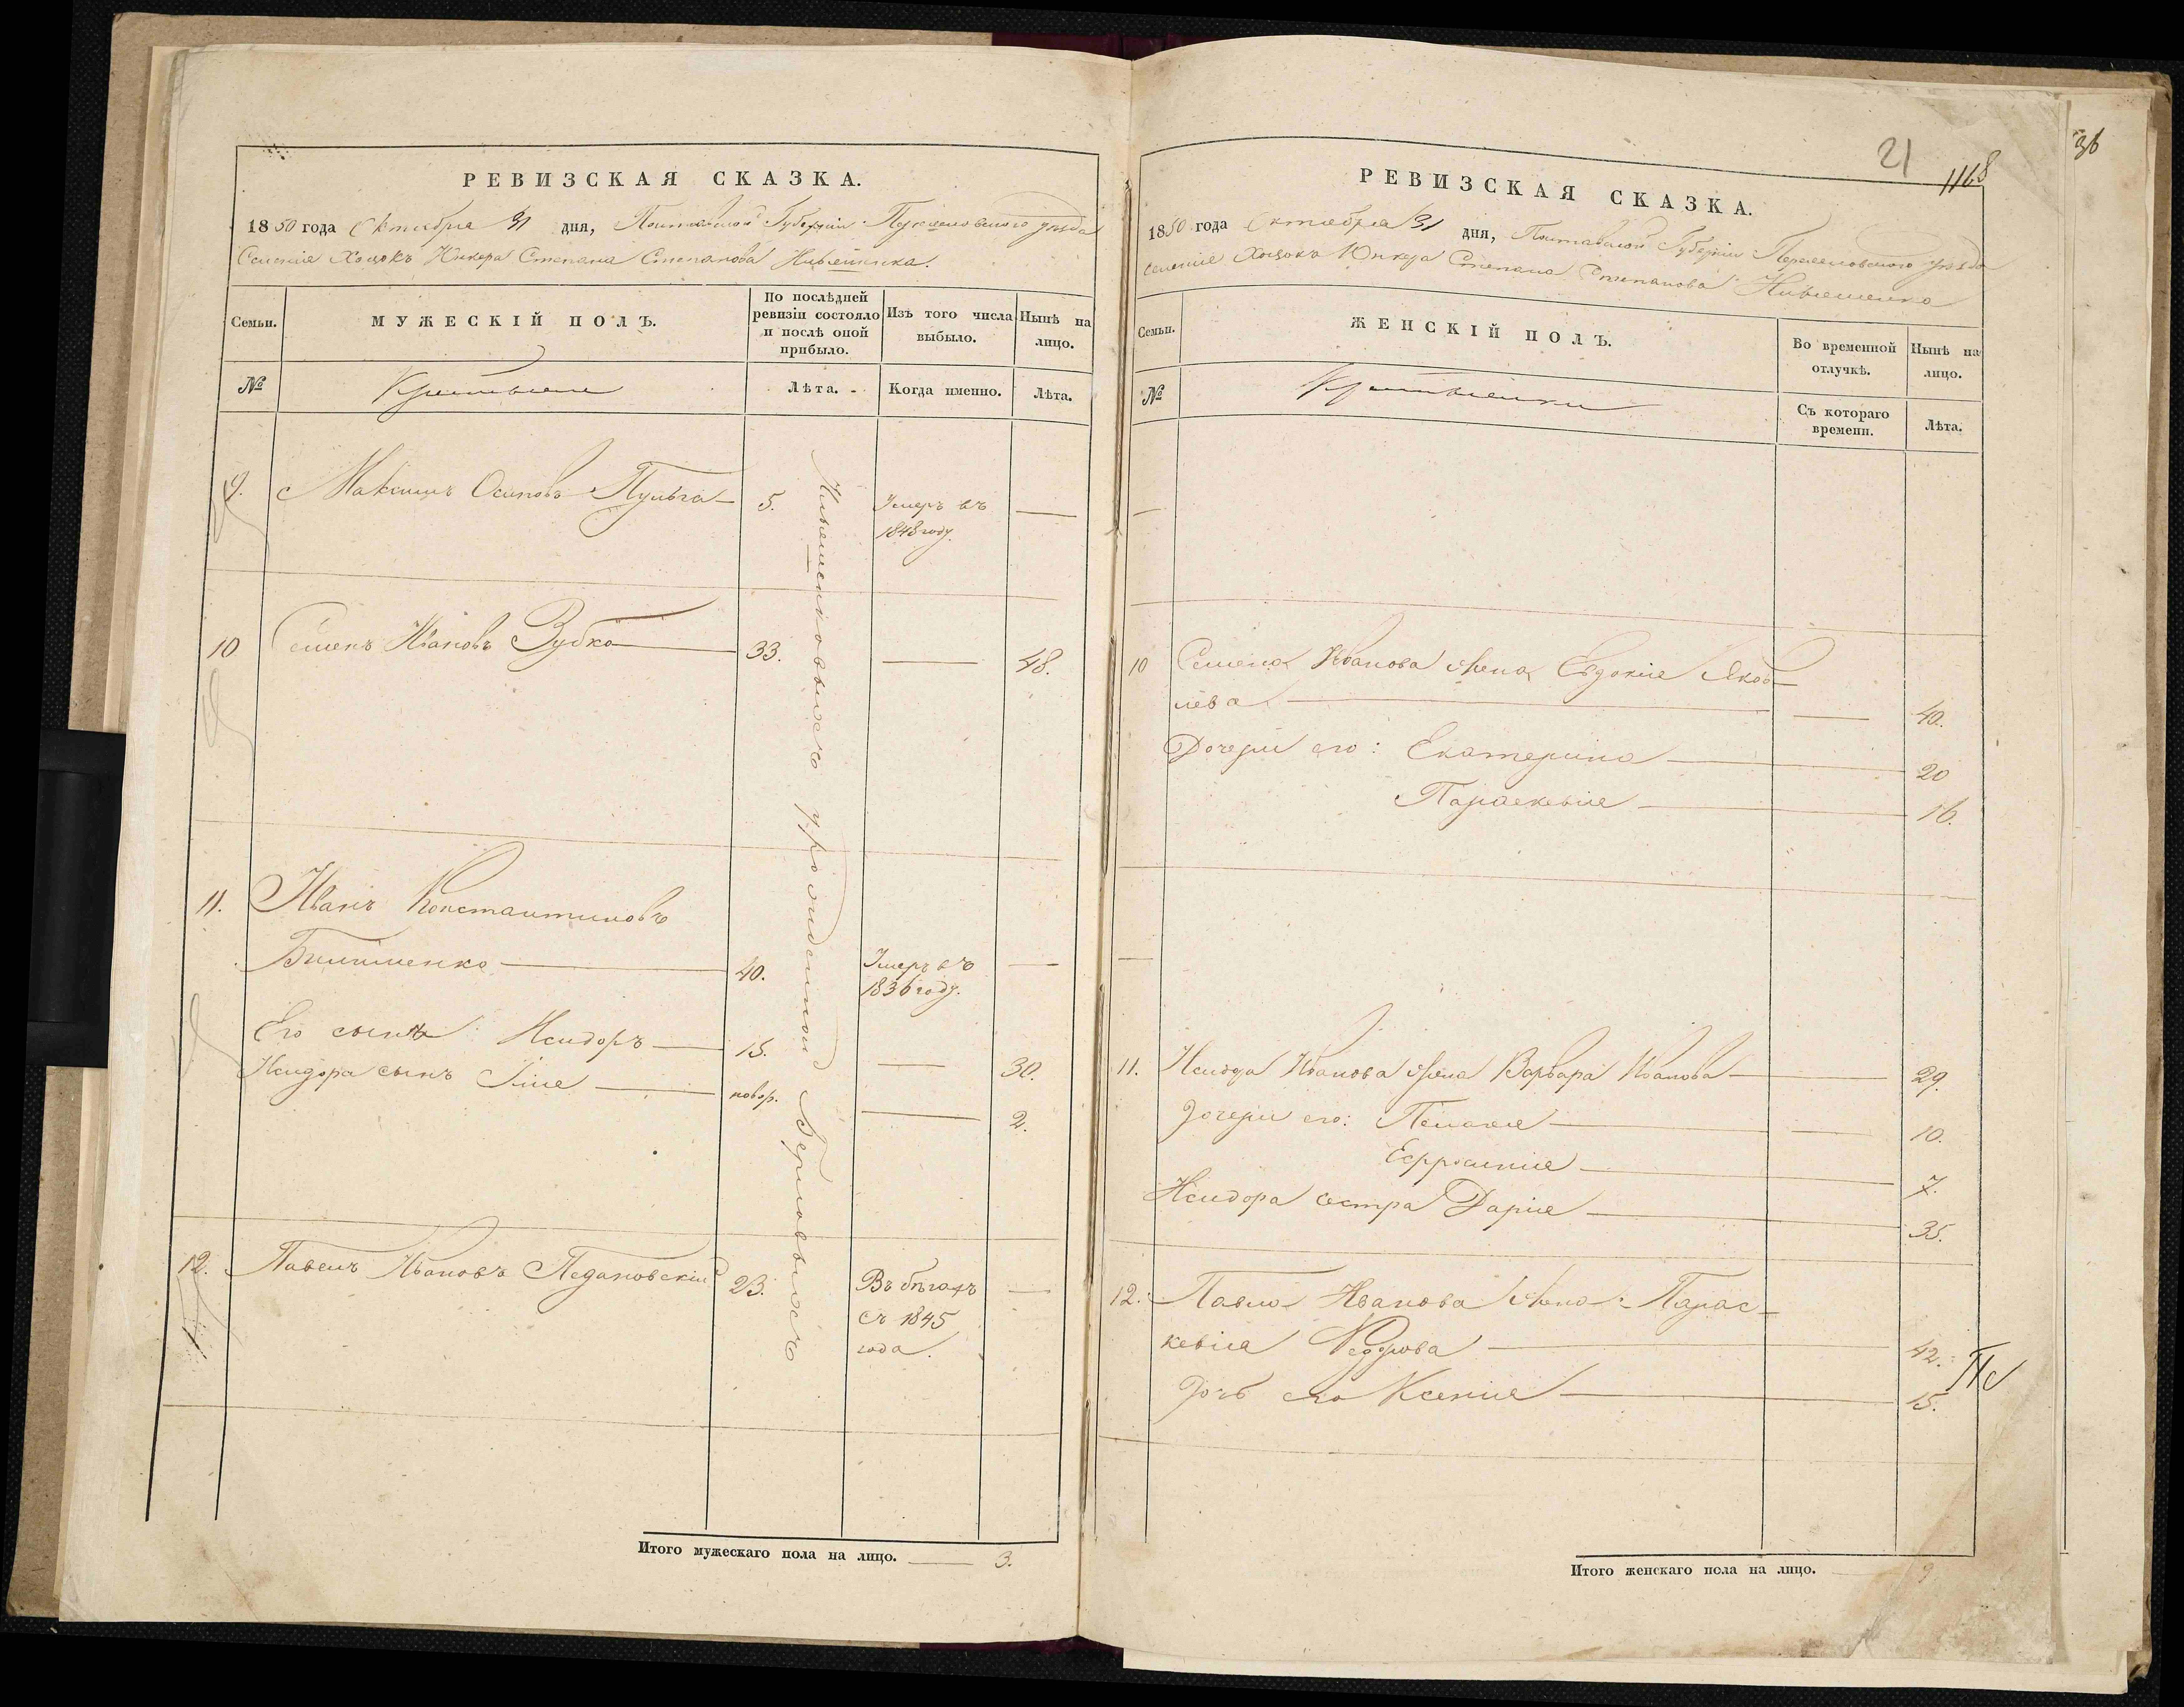 РЕВИЗСКАЯ СКАЗКА.
1850 года Октября 31 дня, Полтавской Губерніи Переяславского уѣзда
Селенія Хоцокъ Юнкера Степана Степанова
МУЖЕСКІЙ ПОЛЪ.
Семьи.
По послѣдней ревизіи состояло и послѣ оной прибыло.
Изъ того числа выбыло.
Нынѣ на лицо.
№
Лѣта.
Когда именно.
Лѣта.
9. Максимъ Осиповъ 5. Умеръ въ
1848 году.
10 Семенъ Ивановъ Зубко 33. 48.
11. Иванъ Константиновъ
40. Умеръ въ
1836 году.
Его сынъ: Исидоръ 15. 30.
Исидора сынъ Илія новор. 2.
12. Павелъ Ивановъ 23. Въ бѣгахъ
съ 1845
года.
Итого мужескаго пола на лицо. 3.
21
1168
36
РЕВИЗСКАЯ СКАЗКА.
1850 года Октября 31 дня, Полтавской Губерніи Переяславского уѣзда
Селенія Хоцокъ Юнкера Степана Степанова
Семьи.
ЖЕНСКІЙ ПОЛЪ.
Во временной отлучкѣ.
Нынѣ на лицо.
№
Съ котораго времени.
Лѣта.
10 Семена Иванова жена Евдокія Яков-
лева 40.
Дочери его: Екатерина 20
Параскевія 16.
11. Исидора Иванова жена Варвара Иванова 29.
Дочери его: Пелагія 10.
Ефросинія 7.
Исидора сестра Дарія 35.
12. Павла Иванова жена Парас-
кевія Федорова 42.
Дочь его Ксенія 15.
Итого женскаго пола на лицо. 9